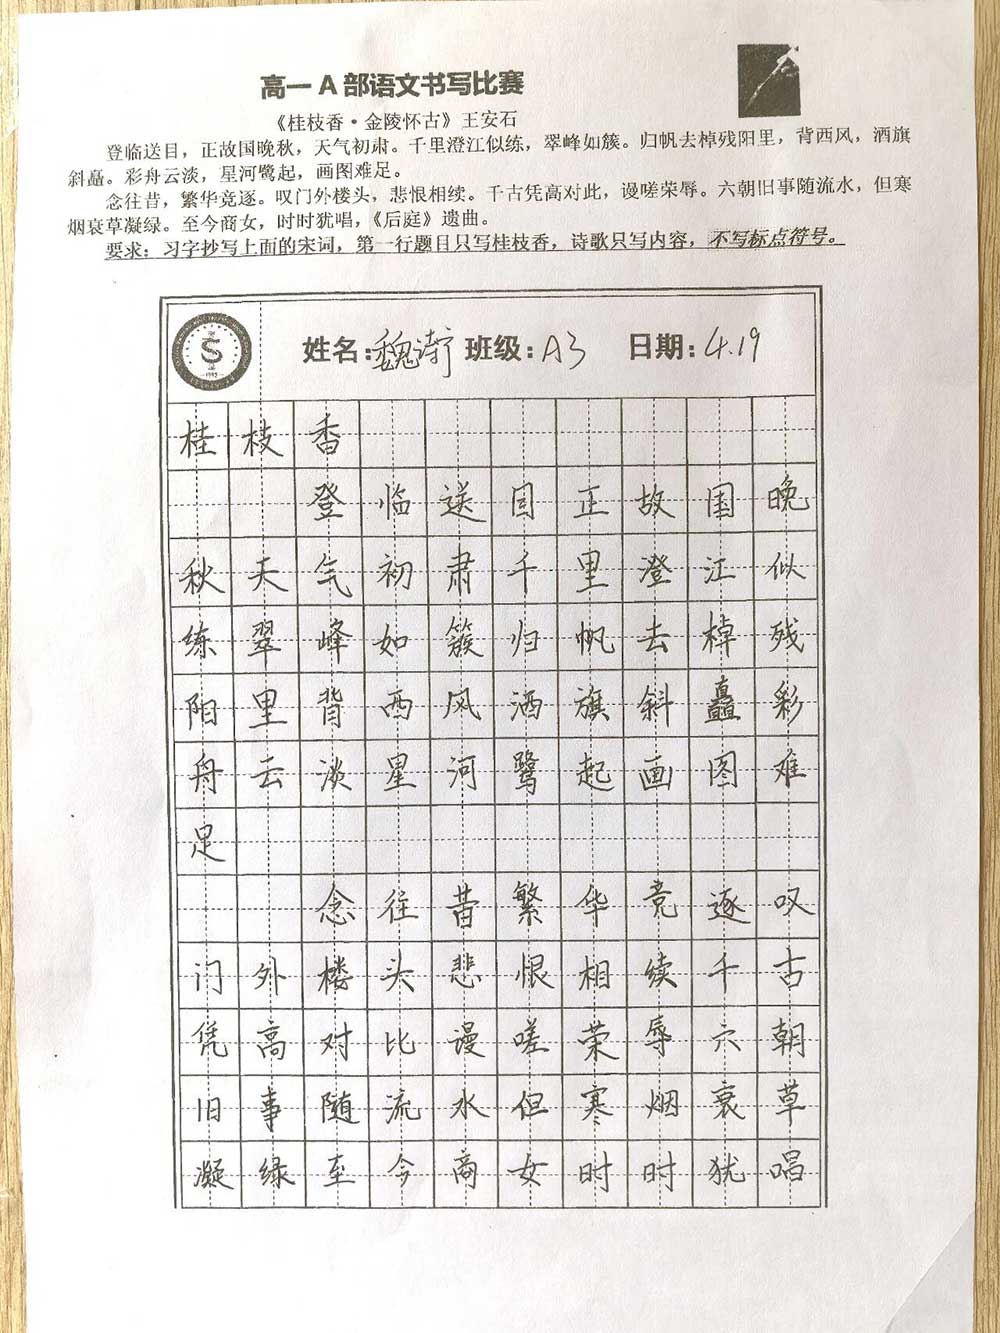 高一 A 部语文书写比赛
《桂枝香·金陵怀古》王安石
登临送目，正故国晚秋，天气初肃。千里澄江似练，翠峰如簇。归帆去棹残阳里，背西风，酒旗
斜矗。彩舟云淡，星河鹭起，画图难足。
念往昔，繁华竞逐。叹门外楼头，悲恨相续。千古凭高对此，谩嗟荣辱。六朝旧事随流水，但寒
烟衰草凝绿。至今商女，时时犹唱，《后庭》遗曲。
要求：习字抄写上面的宋词，第一行题目只写桂枝香，诗歌只写内容，不写标点符号。
姓名：魏 班级：A3 日期：4.19
S
1995
桂枝香
登临送目正故国晚
秋天气初肃千里澄江似
练翠峰如簇归帆去棹残
阳里背西风酒旗斜矗彩
舟云淡星河鹭起画图难
足
念往昔繁华竞逐叹
门外楼头悲恨相续千古
凭高对比谩嗟荣辱六朝
旧事随流水但寒烟衰草
凝绿至今商女时时犹唱